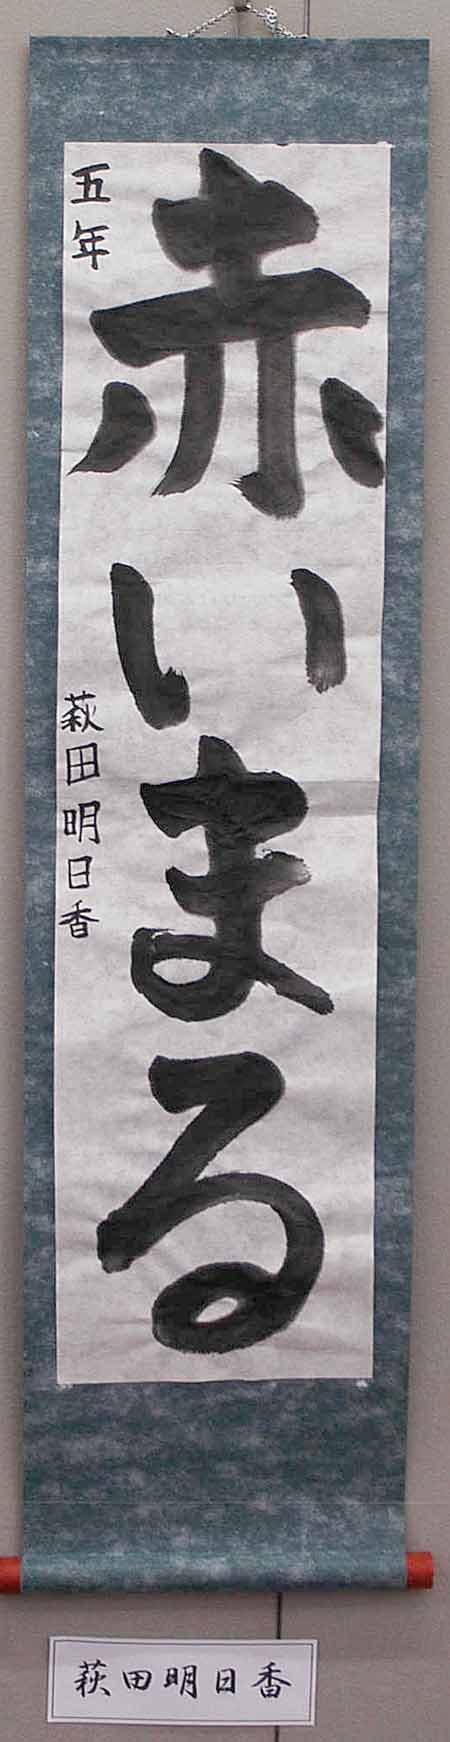 赤いまる
五年 萩田明日香
萩田明日香